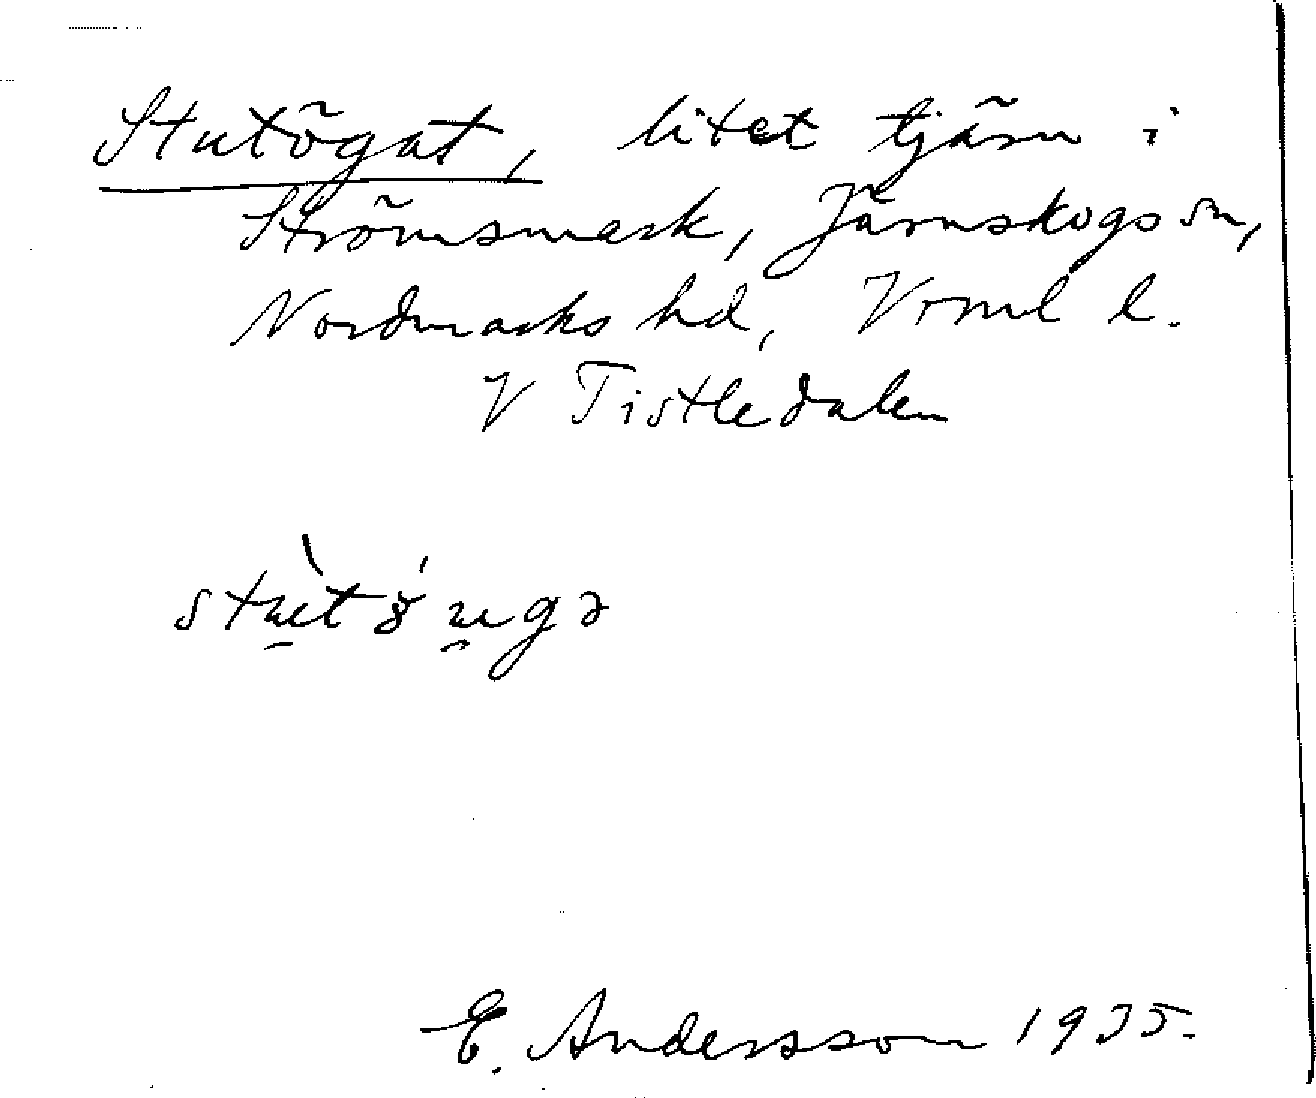 Stutögat, litet tjärn i
Strömsmark, Järnskogs sn,
Nordmarks hd, Vrml l.
V Tistledalen
E. Andersson 1935.